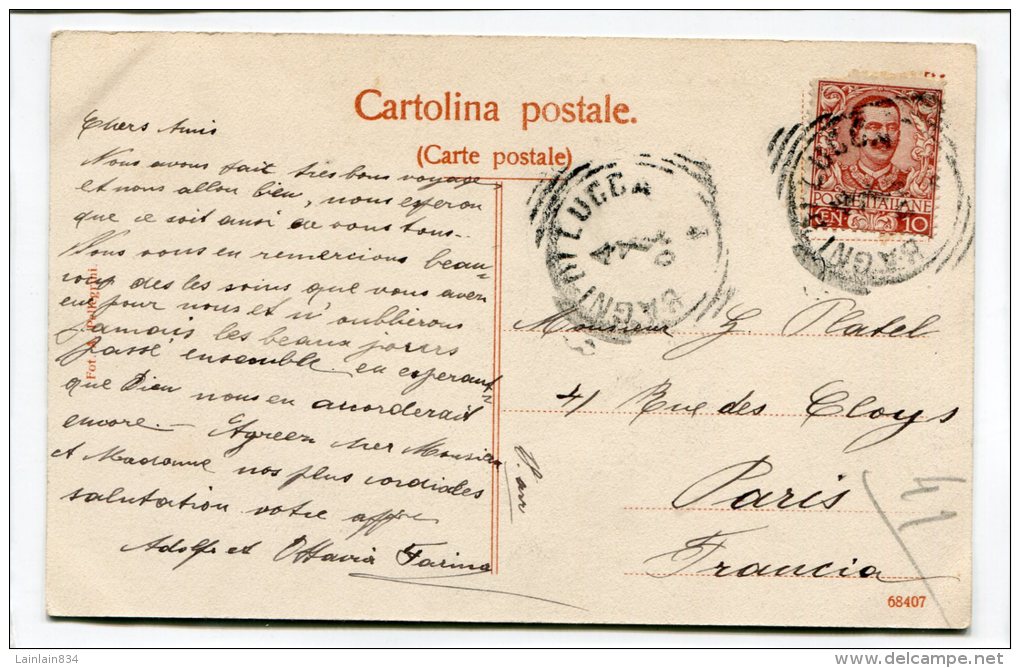 Cartolina postale.
(Carte postale)
Chers Amis
Nous avons fait tres bons voyage
et nous allon bien, nous esperon
que ce soit ausi de vous tous.
Nous vous en remercions beau-
coup des les soins que vous aven
eue pour nous et n'oublierons
jamais les beaux jours
passé ensemble en esperant
que Dien nous en accorderait
encore. - Agreen cher Monsieu
et Madame nos plus cordiales
salutation votre affne
Adolf et Ottavia Farina
Fot. Pellegrini
BAGNI DI LUCCA
BAGNI DI LUCCA
POSTE ITALIANE
CEN. 10
Monsieur G. Platel
41 Rue des Cloys
Paris
Francia
68407
Lainlain834
delcampe.net